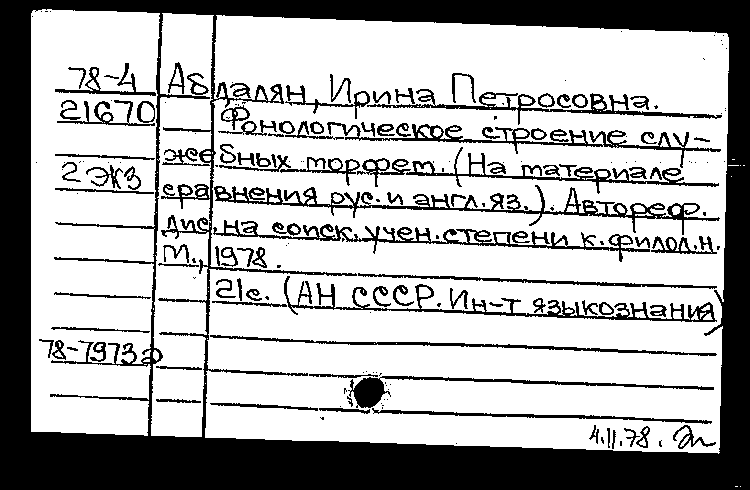 78-4 Абдалян, Ирина Петровна.
21670 Фонологическое строение слу-
жебных морфем. (На материале
2 экз сравнения рус. и англ. яз.). Автореф.
дис. на соиск. учен. степени к. филол. н.
М., 1978.
21с. (АН СССР. Ин-т языкознания)
78-7973а
4.11.78.